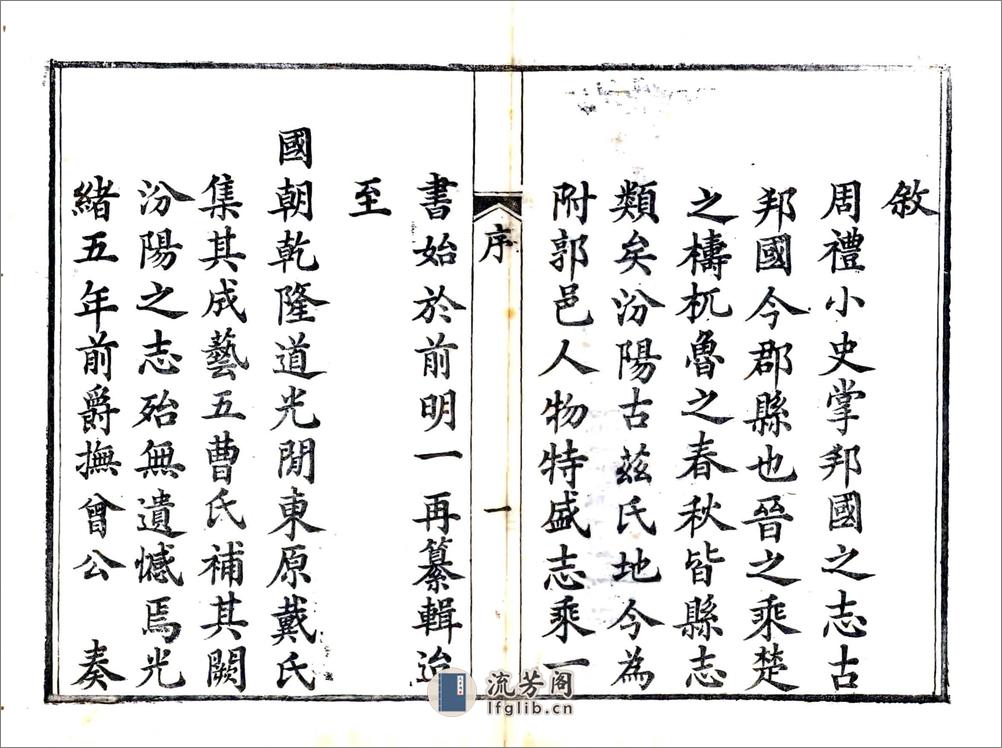 敘
周禮小史掌邦國之志古
邦國今郡縣也晉之乘楚
之檮杌魯之春秋皆縣志
類矣汾陽古兹氏地今為
附郭邑人物特盛志乘一
序
一
書始於前明一再纂輯迨
至
國朝乾隆道光閒東原戴氏
集其成藝五曹氏補其闕
汾陽之志殆無遺憾焉光
緒五年前爵撫曾公 奏
流芳阁
lfglib.cn